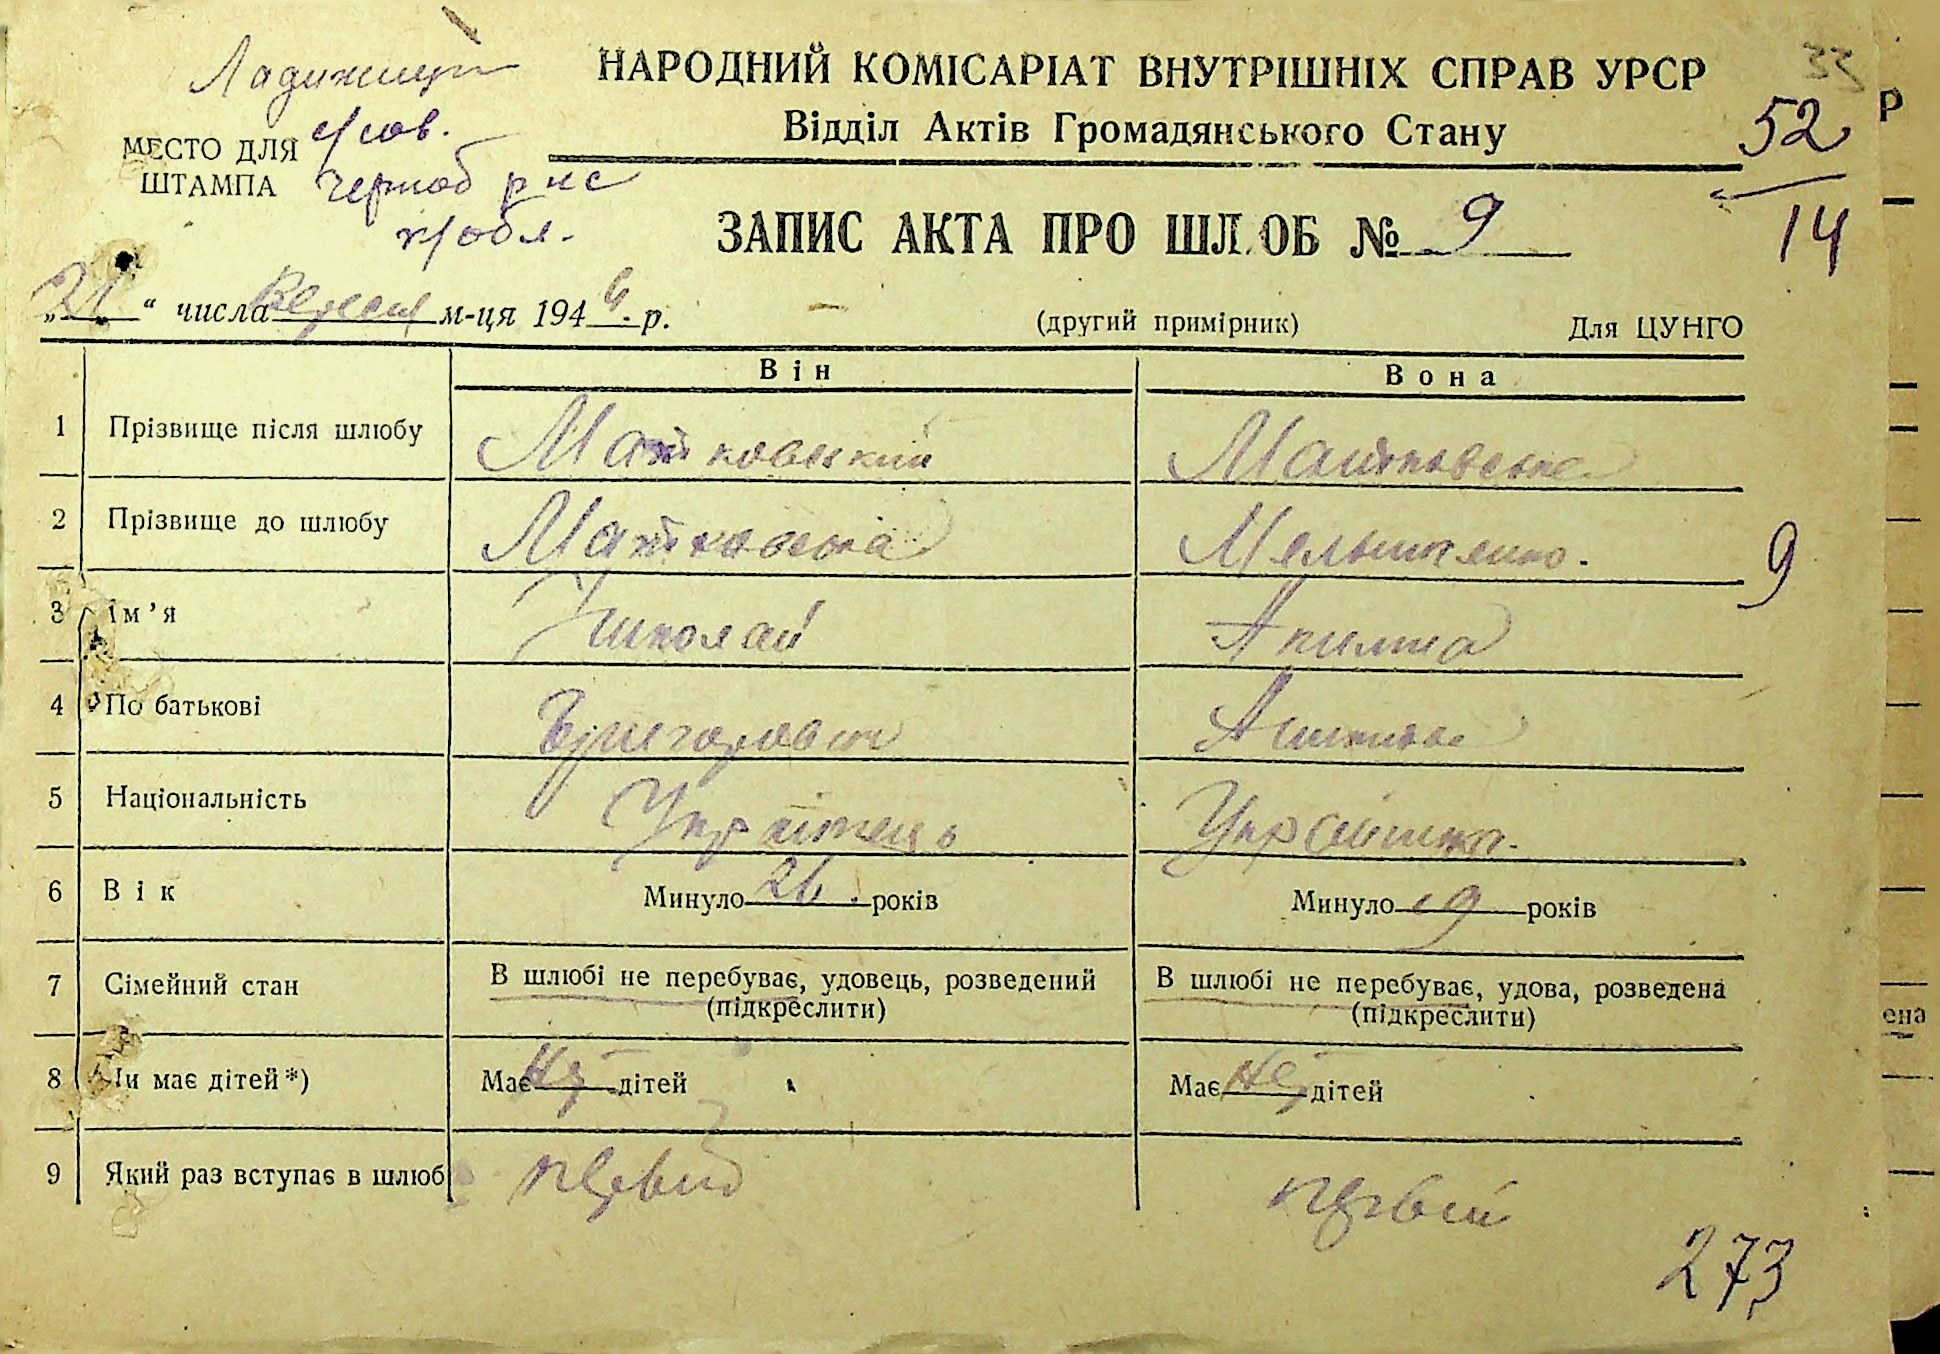 НАРОДНИЙ КОМІСАРІАТ ВНУТРІШНІХ СПРАВ УРСР
Відділ Актів Громадянського Стану
с/сов.
МЕСТО ДЛЯ
ШТАМПА
к/обл.
33
52
14
Р
ЗАПИС АКТА ПРО ШЛ ОБ № 9
„21“ числа м-ця 194 р.
(другий примірник)
Для ЦУНГО
Він
Вона
1 Прізвище після шлюбу Матковский Матковська
2 Прізвище до шлюбу Мельниченко.
9
3 Ім’я Николай Акилина
4 По батькові Григорович
5 Національність Українець Українка.
6 Вік Минуло 26. років Минуло 19 років
7 Сімейний стан В шлюбі не перебуває, удовець, розведений (підкреслити) В шлюбі не перебуває, удова, розведена (підкреслити)
ена
8 Чи має дітей*) Має нет дітей Має нет дітей
9 Який раз вступає в шлюб первий первий
273